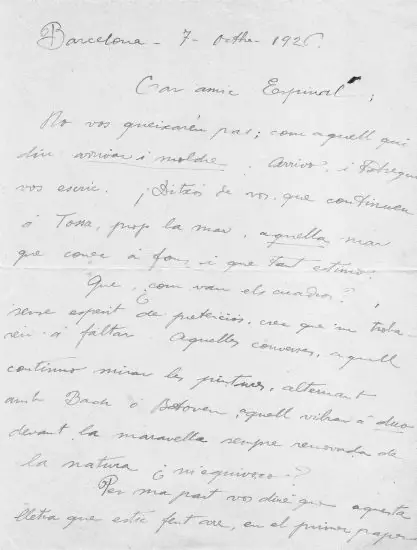 Barcelona - 7 - Octbre - 1926.
Car amic Espinal;
No vos queixareu pas; com aquell qui
diu arrivar i moldre. Arrivo i
vos escric. ¡Ditxós de vos que continueu
á Tona, prop la mar, aquella mar
que conec á fons i que tant estimo!
Que, ¿com van els cuadros?,
sense esperit de pretencios, crec que 'm troba-
reu á faltar. Aquelles converses, aquell
continuo mirar les pintures, alternant
amb Bach ó Betoven, aquell vibrar á duo
devant la maravella sempre renovada de
la natura ¿ m'equivoco?
Per ma part vos diré que aquesta
lletra que estic fent are, en el primer paper